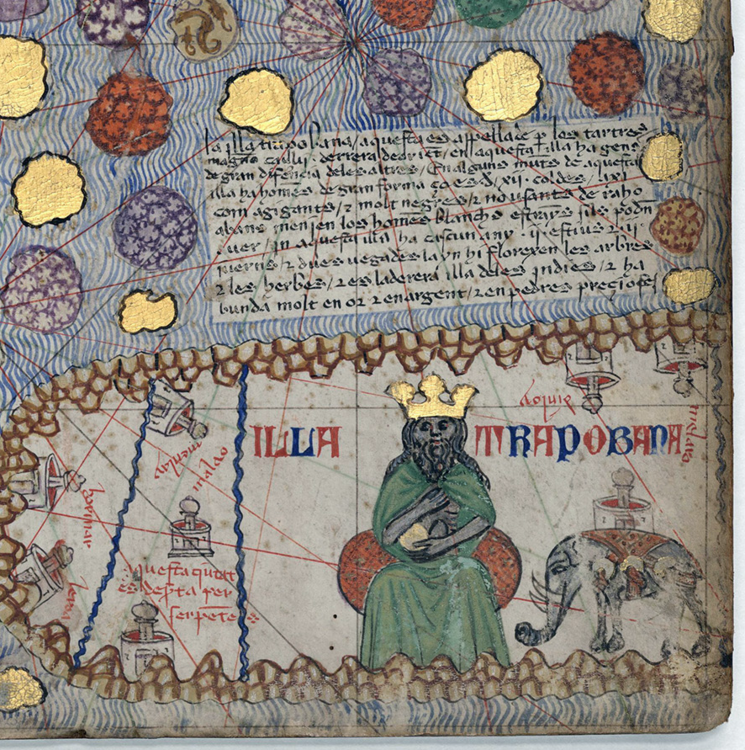 la illa trapobana / aquesta es appellade p los tartres
magno caulij · derrera de orient / en aquesta illa ha gens
de gran diferencia de les altres / En alguns munts de aquesta
illa ha homes de gran forma ço es d / xij · coldes /
com agigants / ⁊ molt negres / ⁊ no usants de raho
abans menjen los homes blanchs estrayns sils podn
auer / In aquesta illa ha cascun any · ij · estius ⁊ · ij ·
iverns / ⁊ dues vegades layn hi florexen les arbres
⁊ les herbes / ⁊ es la derera illa deles indies / ⁊ ha
bunda molt en or ⁊ en argent / ⁊ en pedres precioses
ILLA TRAPOBANA
malao
Aquesta ciutat
es desp̄ta per
serpēts